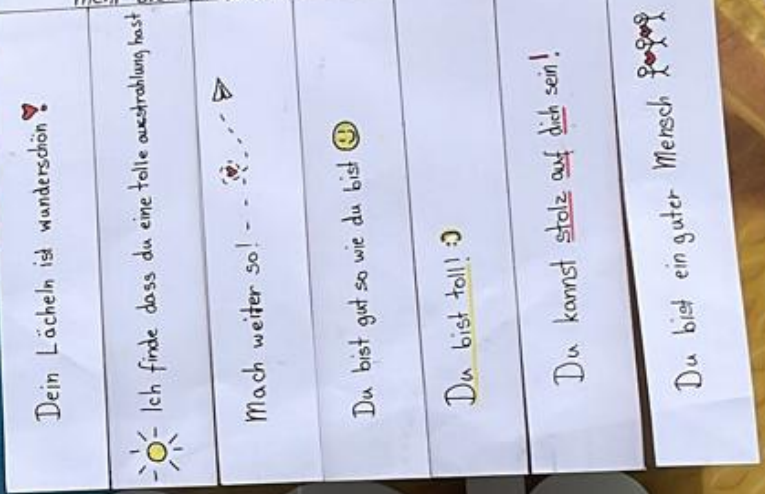 Dein Lächeln ist wunderschön!
Ich finde dass du eine tolle ausstrahlung hast
Mach weiter so!
Du bist gut so wie du bist
Du bist toll! :)
Du kannst stolz auf dich sein!
Du bist ein guter Mensch